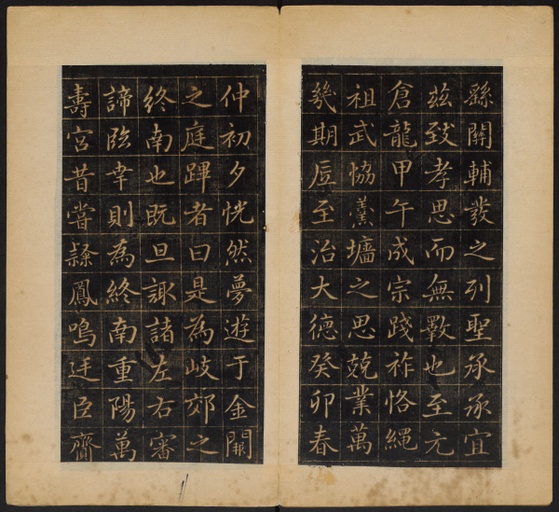 繇關輔發之列聖承承宜
茲致孝思而無斁也至元
倉龍甲午成宗踐祚恪繩
祖武恊羹墻之思兢業萬
幾期厎至治大德癸卯春
仲初夕恍然夢遊于金闕
之庭蹕者曰是為岐郊之
終南也既旦諏諸左右審
諦臨幸則為終南重陽萬
壽宮昔嘗隸鳳鳴廷臣齎